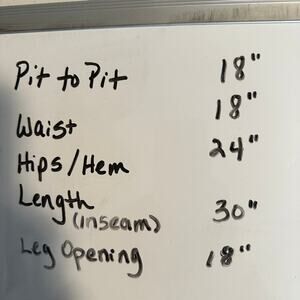 Pit to Pit 18"
Waist 18"
Hips/Hem 24"
Length
(inseam) 30"
Leg Opening 18"